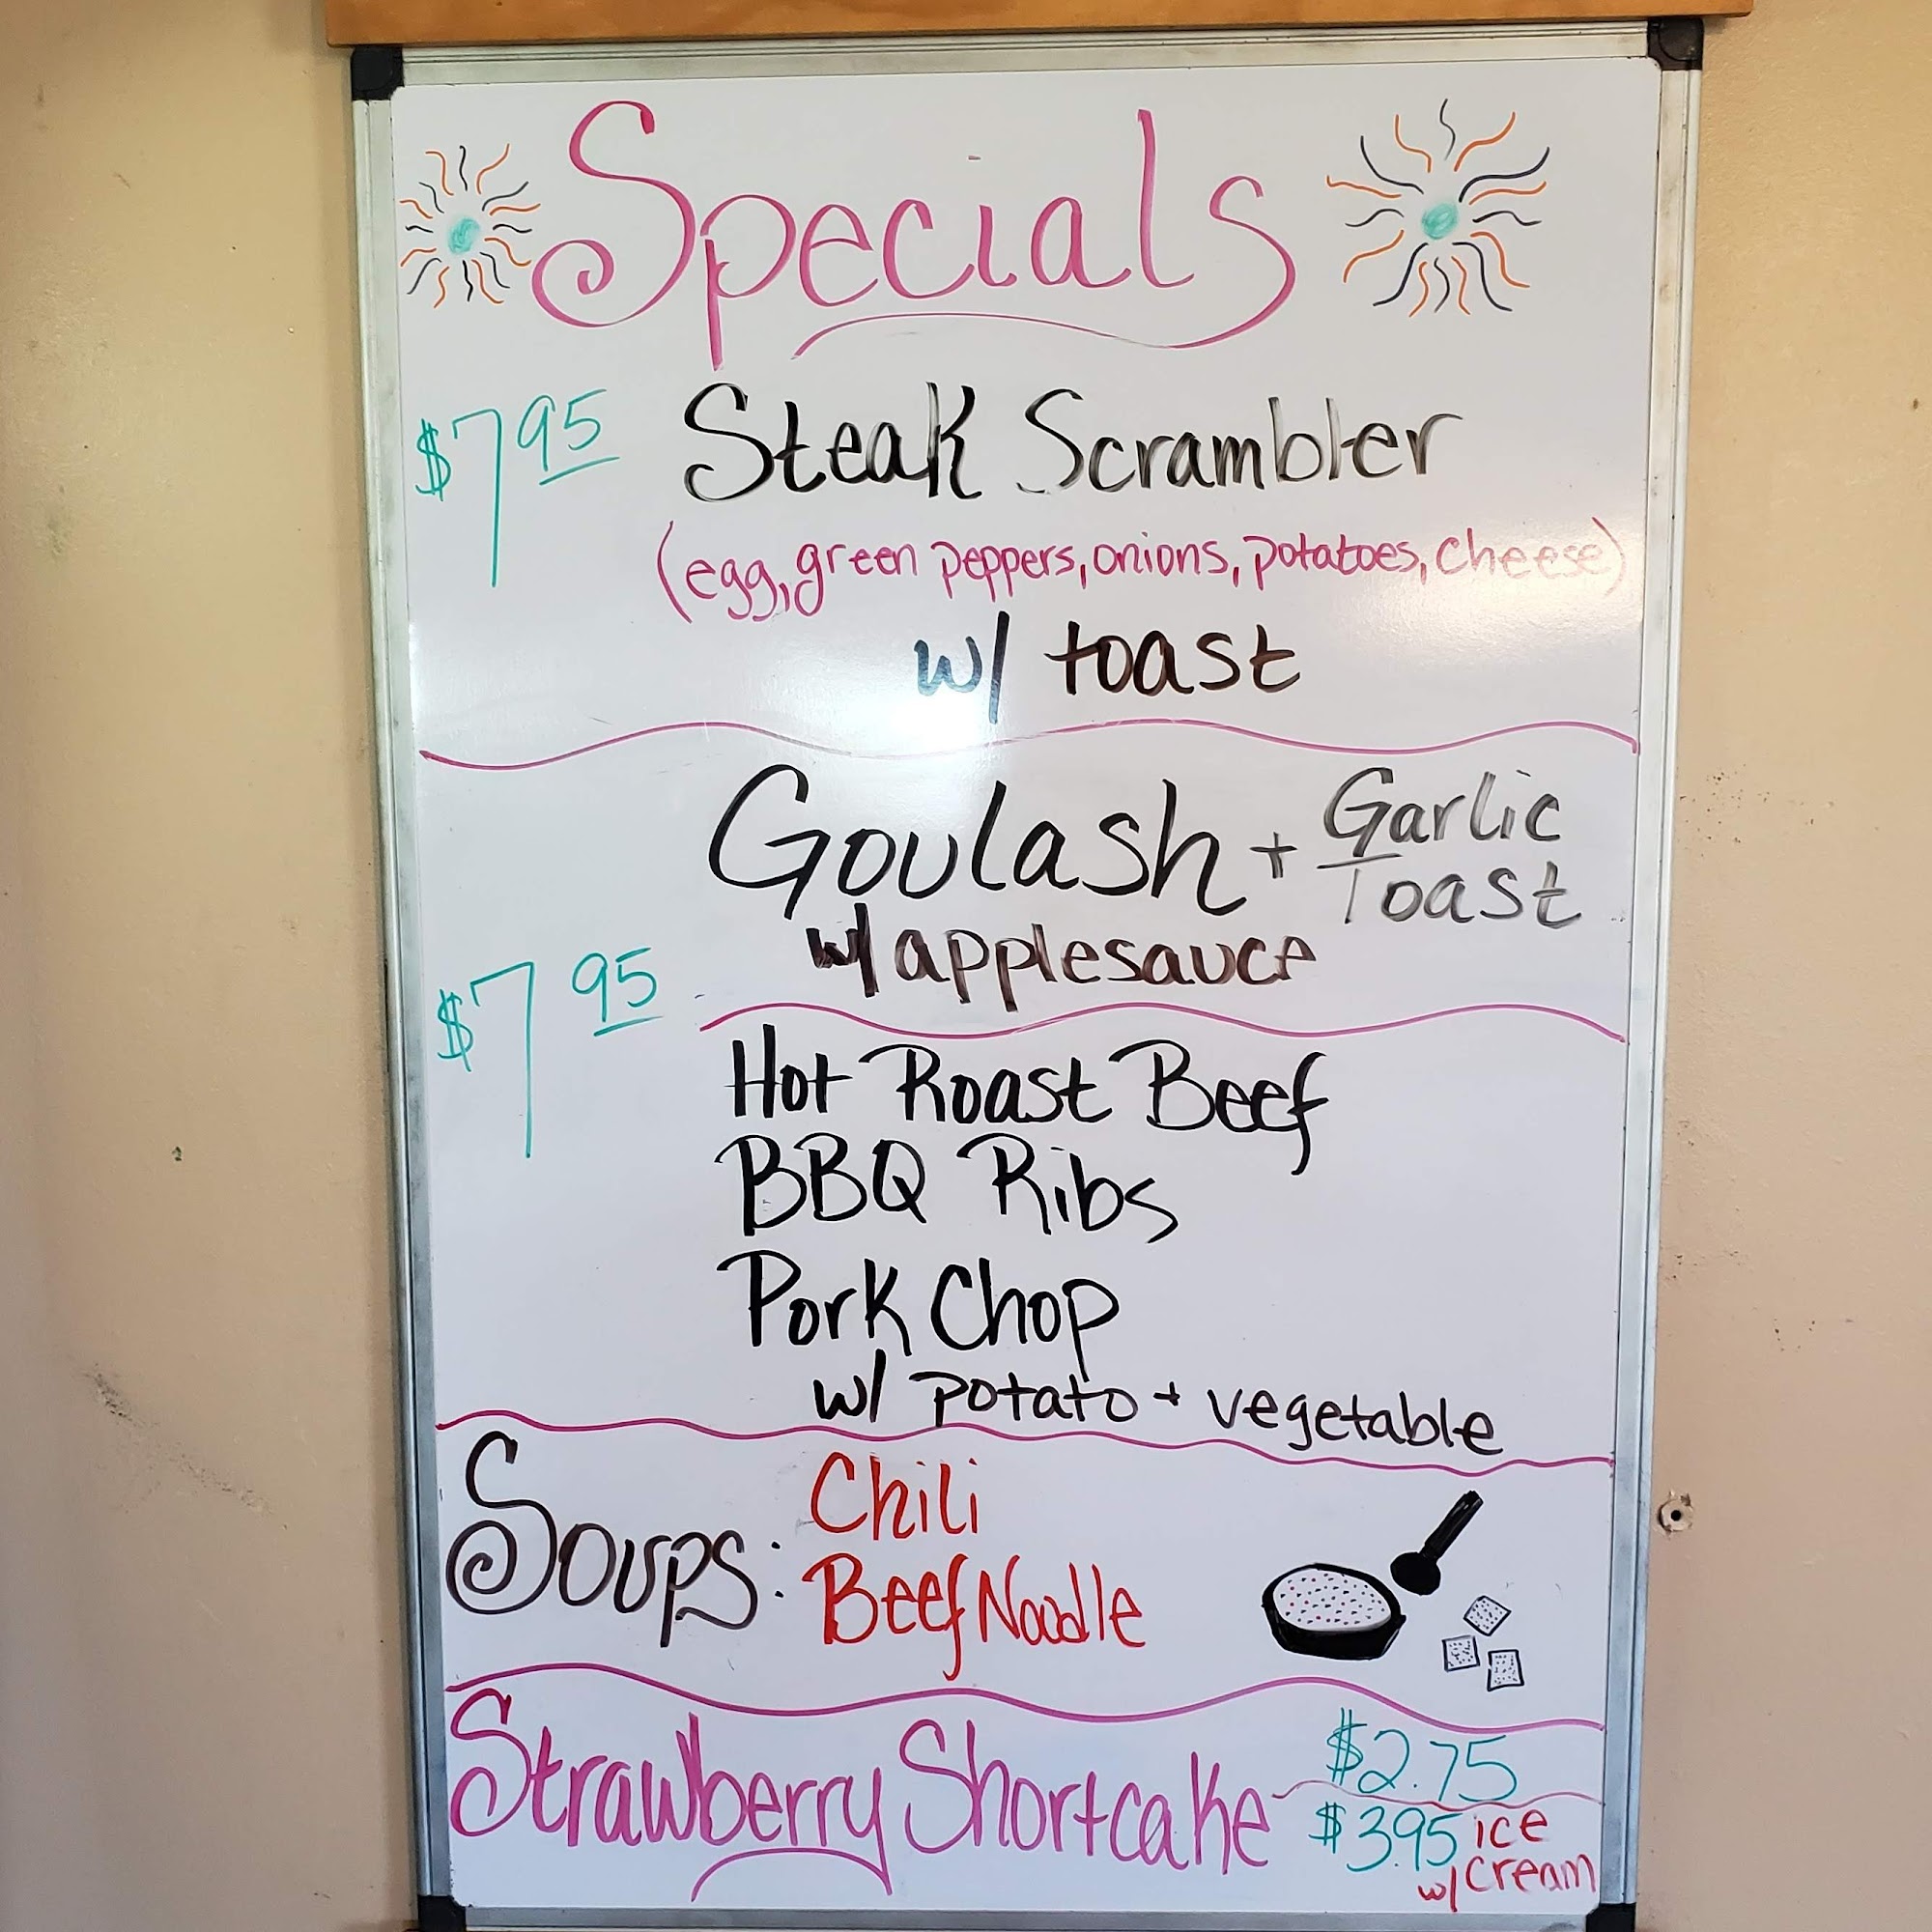 Specials
$7 95 Steak Scrambler
(egg, green peppers, onions, potatoes, cheese)
w/ toast
Goulash + Garlic
Toast
w/ applesauce
$7 95
Hot Roast Beef
BBQ Ribs
Pork Chop
w/ potato + vegetable
Soups: Chili
Beef Noodle
Strawberry Shortcake $2.75
$3.95 ice
w/ cream